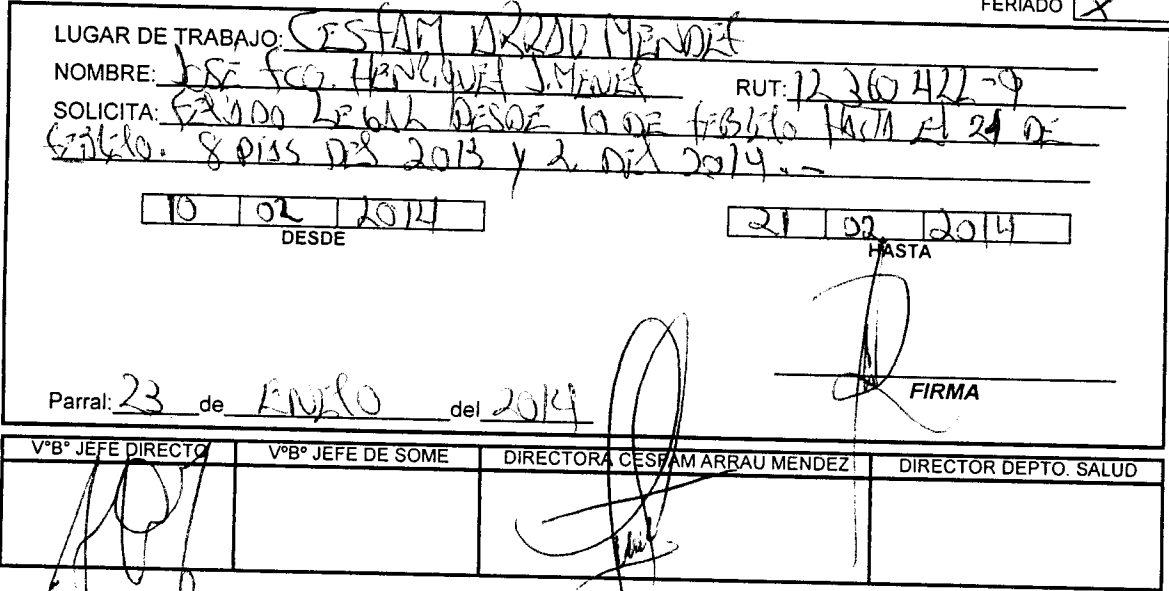 FERIADO X
LUGAR DE TRABAJO: CESFAM ARRAU MENDEZ
NOMBRE: JOSE FCO. HENRIQUEZ JIMENEZ RUT: 12 360 422-9
SOLICITA: FERIADO LEGAL DESDE 10 DE FEBRERO HASTA EL 21 DE
FEBRERO. 8 DIAS DEL 2013 Y 2 DEL 2014.-
10 02 2014 21 02 2014
DESDE HASTA
FIRMA
Parral: 23 de ENERO del 2014
VºBº JEFE DIRECTO VºBº JEFE DE SOME DIRECTORA CESFAM ARRAU MENDEZ DIRECTOR DEPTO. SALUD